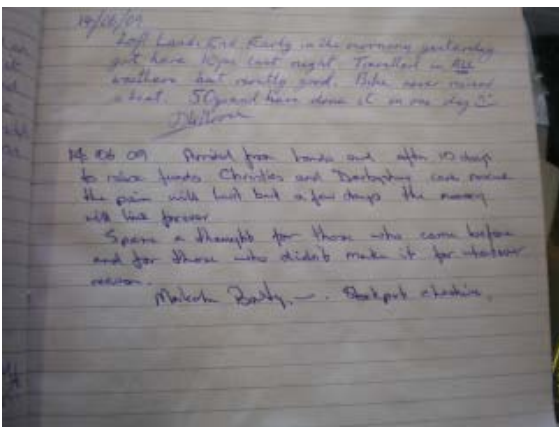 14/06/09
Left Lands End Early in the morning yesterday
got here 10pm last night. Travelled in ALL
weathers but mostly good. Bike never missed
a beat. 50 and have done it in one day
14 06 09 Arrived from lands end after 10 days
to raise funds Christies and Derbyshire cave rescue
the pain will last but a few days the memory
will live forever
Spare a thought for those who came before
and for those who didn't make it for whatever
reason.
Malcolm Stockport cheshire.